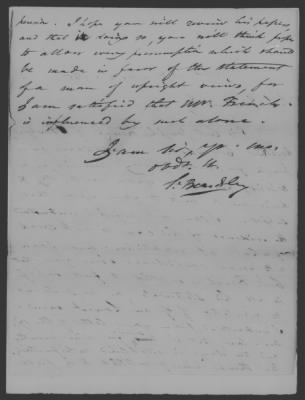 pension. I hope you will revise his papers,
and that in doing so, you will think proper
to allow every presumption which should
be made in favor of the statement
of a man of upright views, for
I am satisfied that Mr. French
is influenced by such alone.
I am Sir, yr. mo.
obdt. St.
S. Beardsley